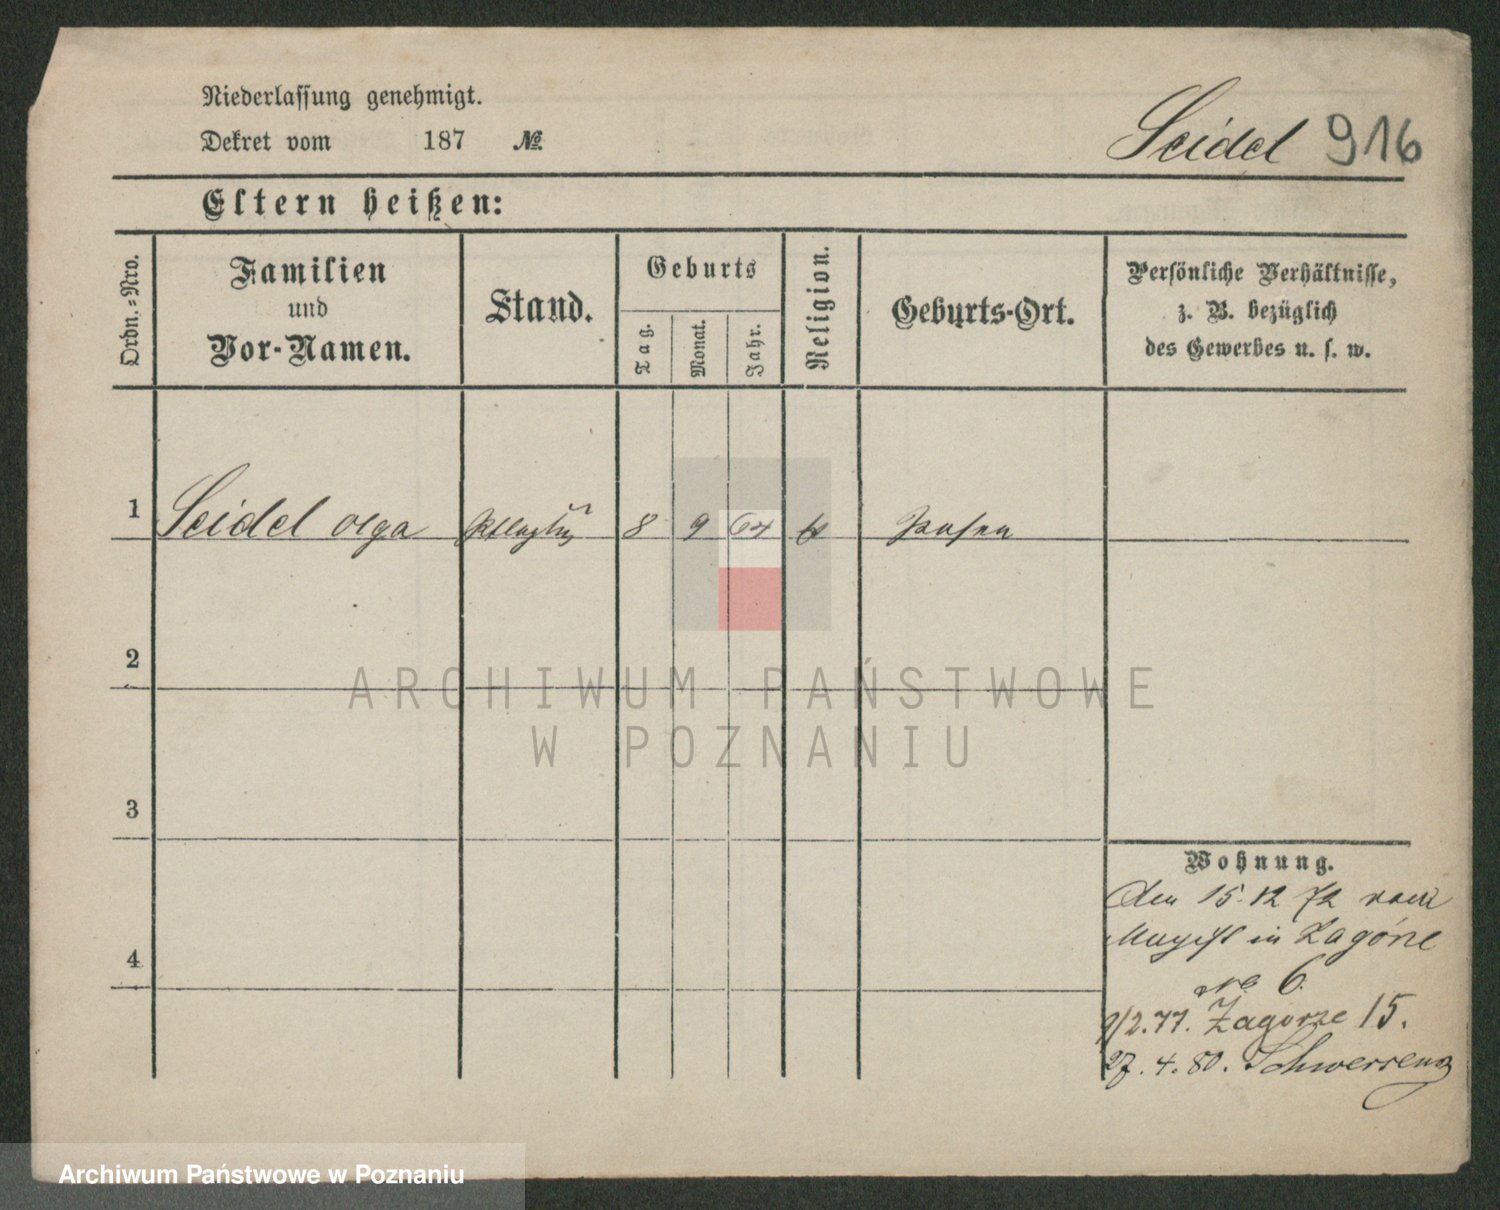 Niederlassung genehmigt.
Dekret vom 187 №
Seidel 916
Eltern heißen:
Ordn.-Nro.
Familien
und
Vor-Namen.
Stand.
Geburts
Tag.
Monat.
Jahr.
Religion.
Geburts-Ort.
Persönliche Verhältnisse,
z. B. bezüglich
des Gewerbes u. s. w.
1 Seidel Olga 8 9 64 Posen
2
ARCHIWUM PAŃSTWOWE
W POZNANIU
3
Wohnung.
Den 15. 12 72 nach
in Zagórze
4
№ 6.
9/2.77. Zagorze 15.
27. 4. 80. Schwersenz
Archiwum Państwowe w Poznaniu